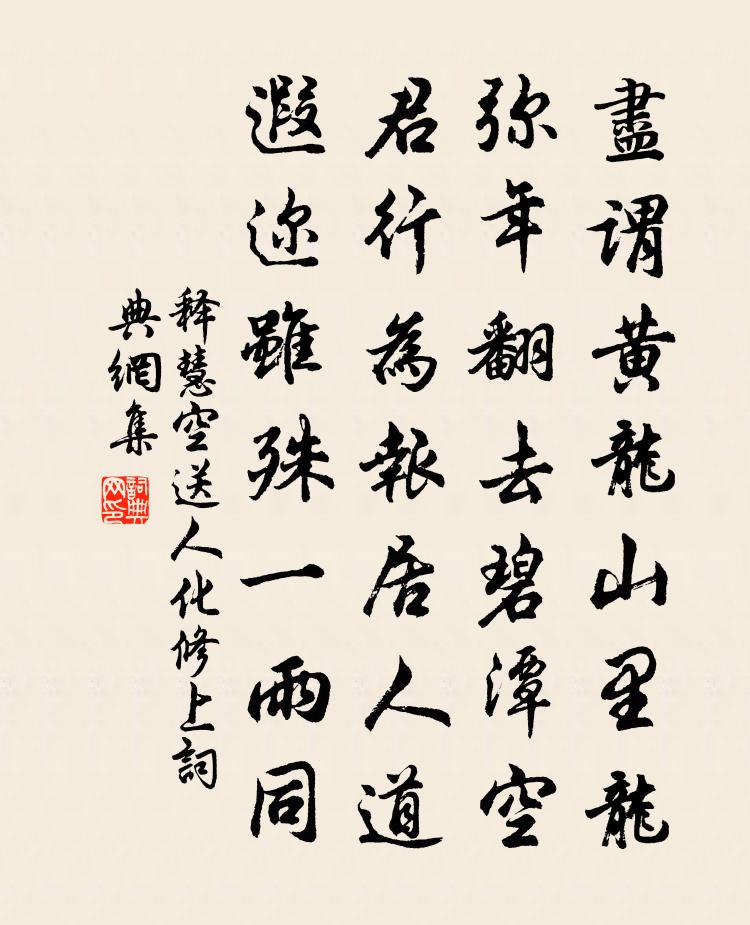 盡謂黄龍山里龍
弥年翻去碧潭空
君行為報居人道
遐迩雖殊一雨同
释慧空送人化修上詞
典網集
詞典
网印